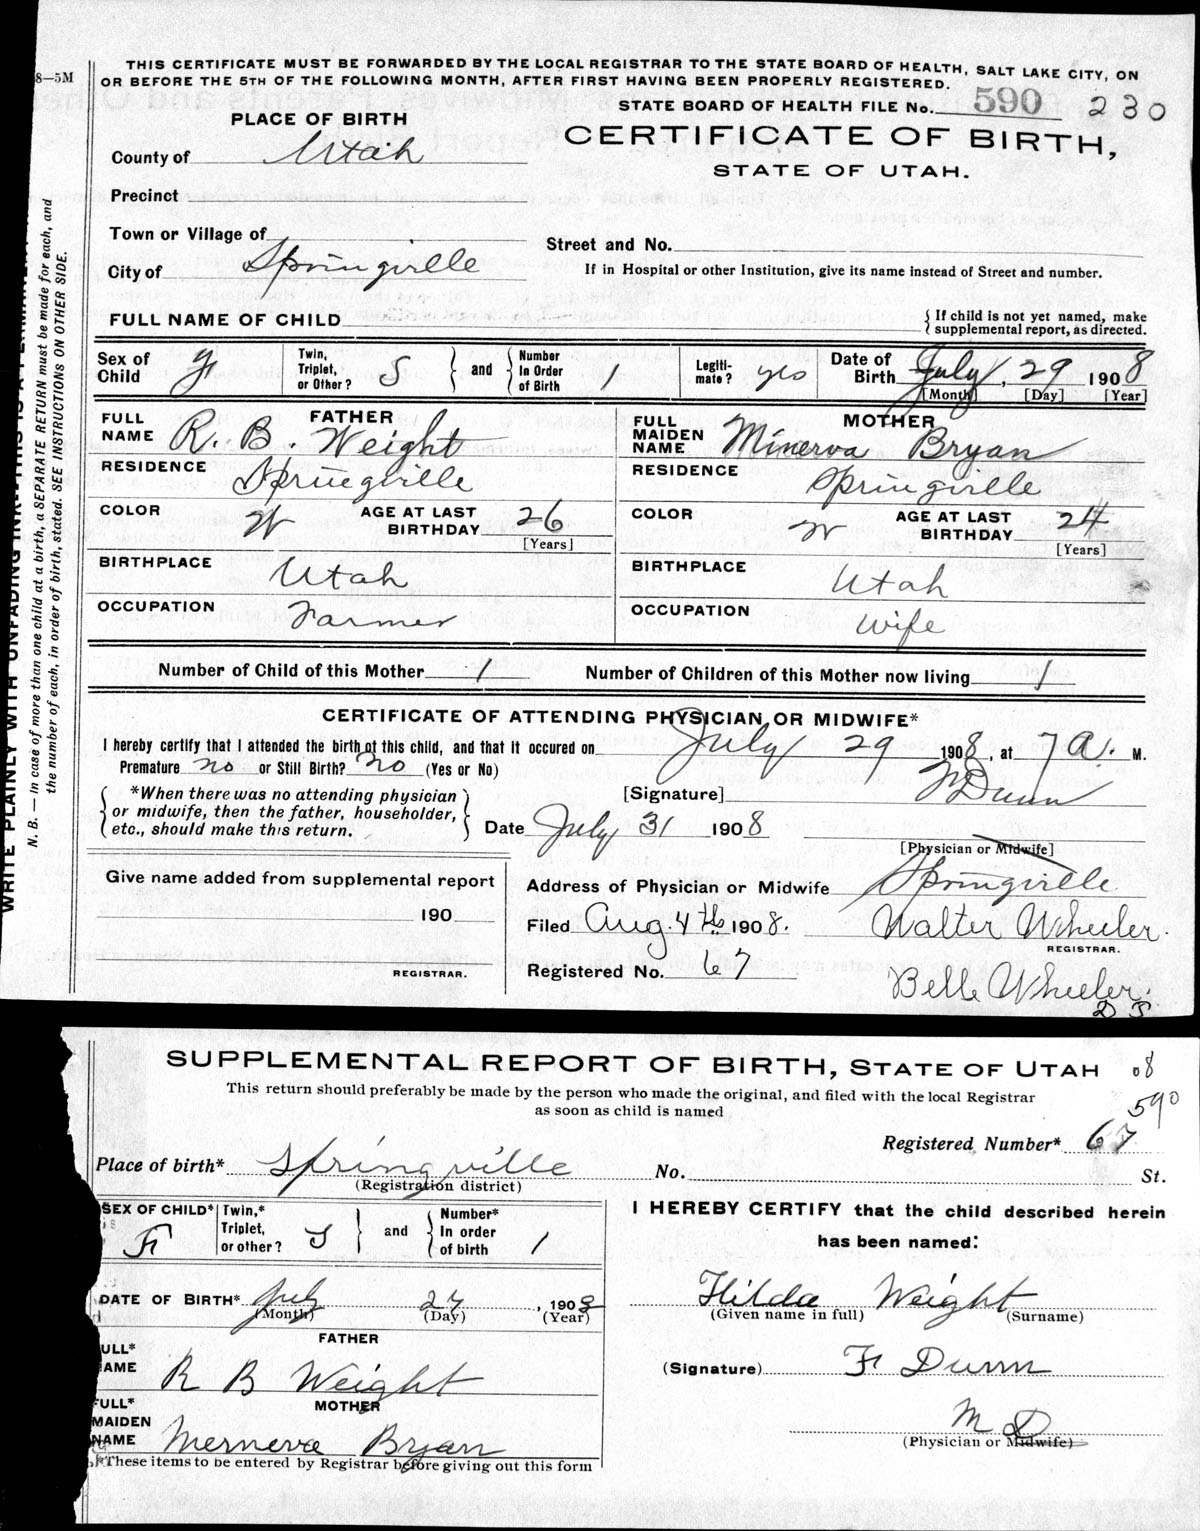 8—5M
THIS CERTIFICATE MUST BE FORWARDED BY THE LOCAL REGISTRAR TO THE STATE BOARD OF HEALTH, SALT LAKE CITY, ON
OR BEFORE THE 5TH OF THE FOLLOWING MONTH, AFTER FIRST HAVING BEEN PROPERLY REGISTERED.
STATE BOARD OF HEALTH FILE No. 590 230
PLACE OF BIRTH
CERTIFICATE OF BIRTH,
STATE OF UTAH.
County of Utah
Precinct
Town or Village of
Street and No.
City of Springville
If in Hospital or other Institution, give its name instead of Street and number.
FULL NAME OF CHILD
{ If child is not yet named, make
supplemental report, as directed.
Sex of Child F
Twin, Triplet, or Other? S } and { Number In Order of Birth 1
Legiti-mate? yes
Date of Birth July, 29 1908
[Month] [Day] [Year]
FATHER
FULL NAME R. B. Weight
RESIDENCE Springville
COLOR W AGE AT LAST BIRTHDAY 26
[Years]
BIRTHPLACE Utah
OCCUPATION Farmer
MOTHER
FULL MAIDEN NAME Minerva Bryan
RESIDENCE Springville
COLOR W AGE AT LAST BIRTHDAY 24
[Years]
BIRTHPLACE Utah
OCCUPATION Wife
Number of Child of this Mother 1 Number of Children of this Mother now living 1
CERTIFICATE OF ATTENDING PHYSICIAN OR MIDWIFE*
I hereby certify that I attended the birth of this child, and that it occured on July 29 1908, at 7 A. M.
Premature no or Still Birth? no (Yes or No)
*When there was no attending physician
or midwife, then the father, householder,
etc., should make this return.
[Signature] F Dunn
Date July 31 1908
[Physician or Midwife]
Give name added from supplemental report
190
REGISTRAR.
Address of Physician or Midwife Springville
Filed Aug. 4th 1908. Walter Wheeler.
REGISTRAR.
Registered No. 67
Belle Wheeler.
WRITE PLAINLY WITH UNFADING INK—THIS IS A PERMANENT
N. B. — In case of more than one child at a birth, a SEPARATE RETURN must be made for each, and
the number of each, in order of birth, stated. SEE INSTRUCTIONS ON OTHER SIDE.
SUPPLEMENTAL REPORT OF BIRTH, STATE OF UTAH 08
This return should preferably be made by the person who made the original, and filed with the local Registrar
as soon as child is named
590
Registered Number* 67
Place of birth* Springville No. St.
(Registration district)
SEX OF CHILD* F
Twin,* Triplet, or other? S } and { Number* In order of birth 1
DATE OF BIRTH* July 27, 1908
(Month) (Day) (Year)
FATHER
ULL* AME R B Weight
MOTHER
FULL* MAIDEN NAME Mernerva Bryan
*These items to be entered by Registrar before giving out this form
I HEREBY CERTIFY that the child described herein
has been named:
Hilda Weight
(Given name in full) (Surname)
(Signature) F Dunn
M D
(Physician or Midwife)